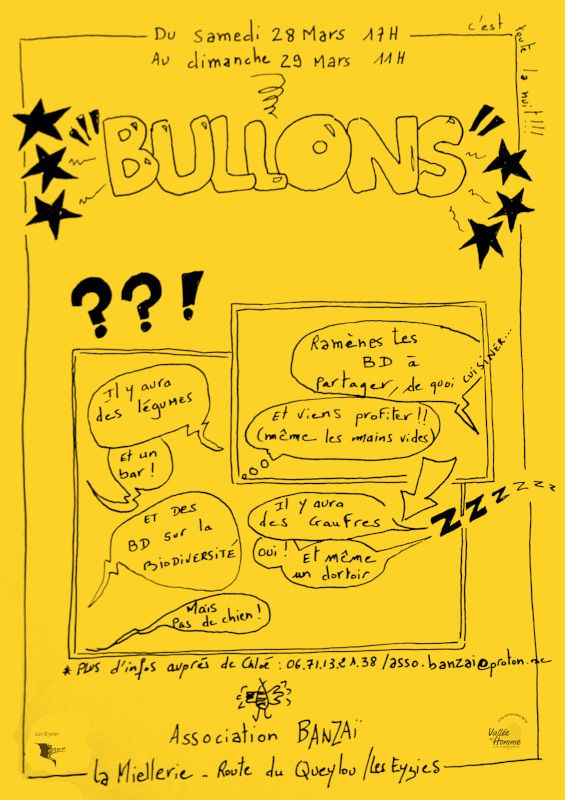 Du samedi 28 Mars 17H
Au dimanche 29 Mars 11H
c'est toute la nuit!!!
BULLONS
??!
Ramènes tes
BD à
partager, de quoi cuisiner...
Et viens profiter!!
(même les mains vides)
Il y aura
des légumes
Et un
bar!
ET DES
BD sur la
BIODIVERSITÉ
Il y aura
des Gaufres
Oui!
Et même
un dortoir
ZZZZZZZ
Mais
Pas de chien!
* Plus d'infos auprés de Chloé : 06.71.13.21.38 / asso.banzai@proton.me
Association BANZAÏ
La Miellerie - Route du Queylou / Les Eyzies
Les Eyzies
Vallée
Homme